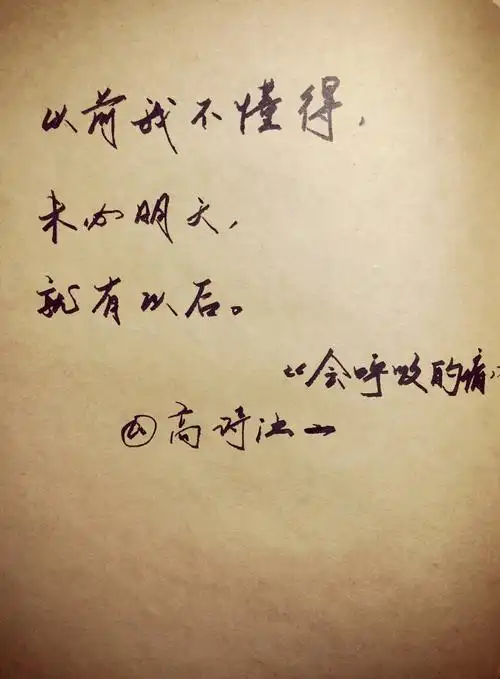 以前我不懂得，
未必明天，
就有以后。
“会呼吸的痛
高